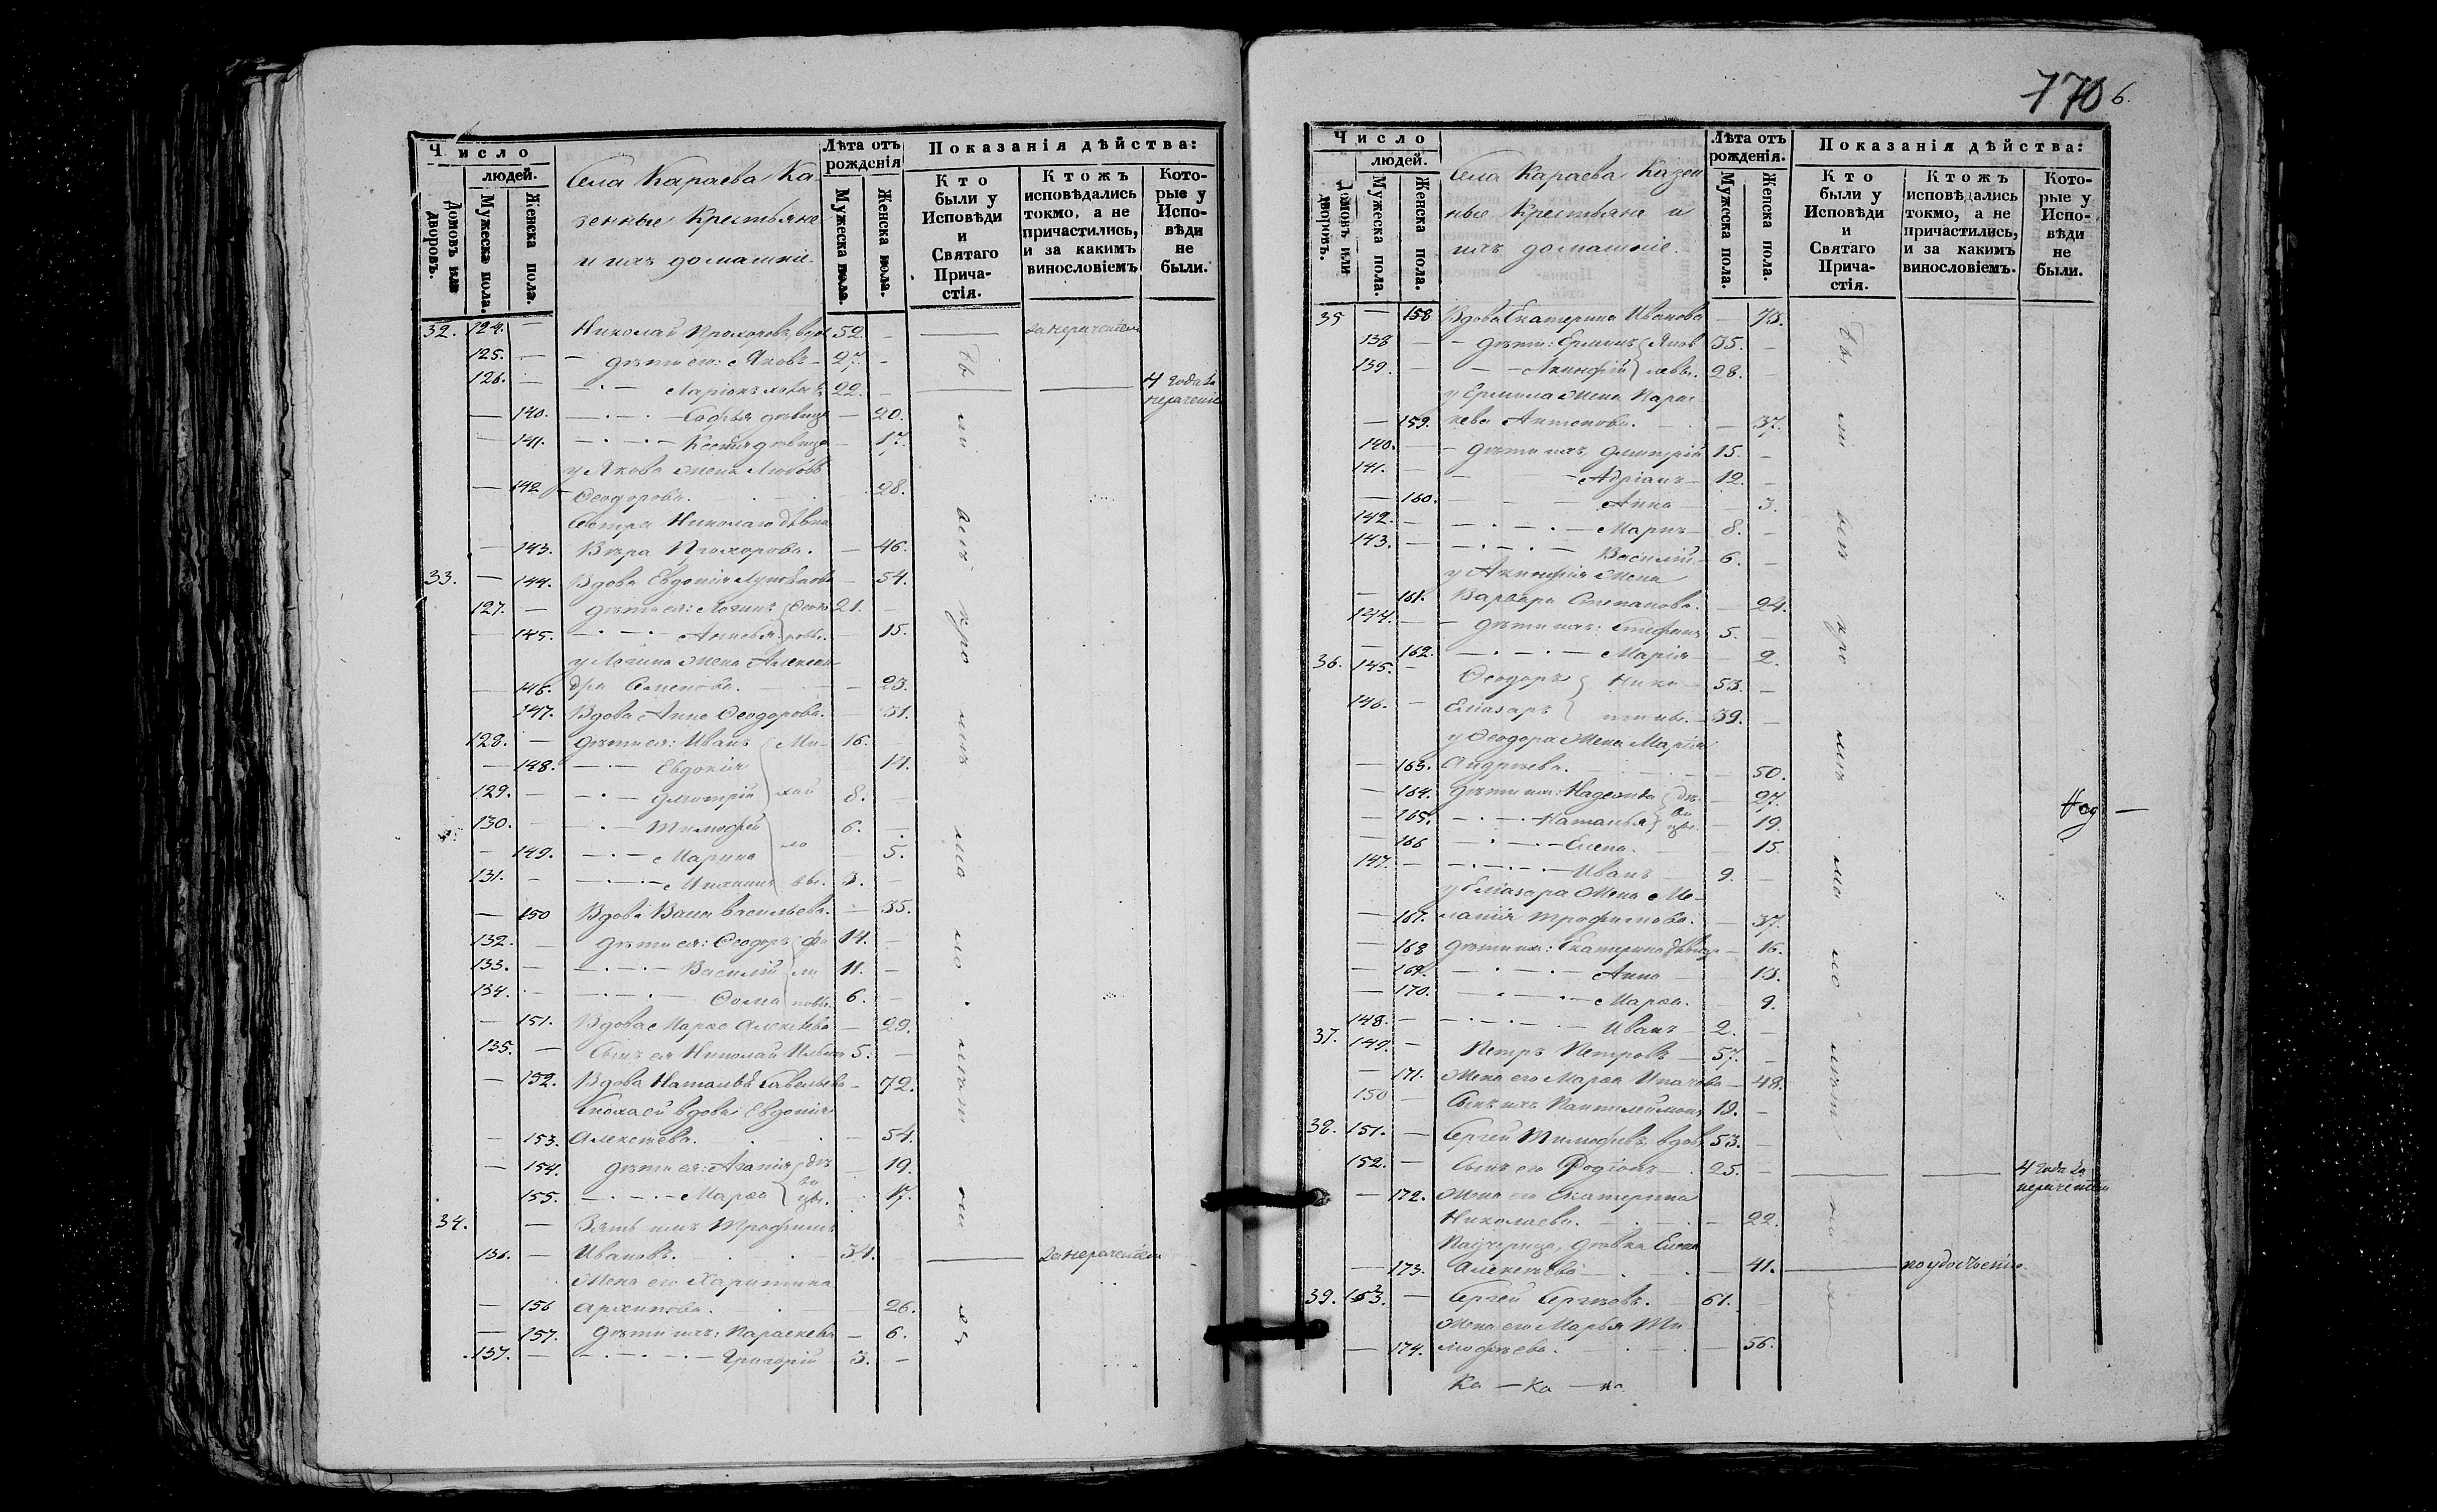 170 6.
Число
людей.
Домовъ или дворовъ.
Мужеска пола.
Женска пола.
Села Караева Ка-
зенные Крестьяне
и ихъ домашніе.
Лѣта отъ рожденія
Мужеска пола.
Женска пола.
Показанія дѣйства:
Кто были у Исповѣди и Святаго Прича-стія.
Ктожъ исповѣдались токмо, а не причастились, и за какимъ винословіемъ
Кото-рые у Испо-вѣди не были.
32. 124. — Николай Прохоровъ, вдов 52. — за нераченіем
125. — дѣти его: Яковъ — 27. —
126. — Ларіонъ 22. — 4 года за нераченіе
— 140. Софья дѣвица — 20.
— 141. Ксенія дѣвица — 17.
у Якова жена Любовь
— 142 Ѳеодорова. 28.
Сестра Николаю дѣвка
— 143. Вѣра Прохорова. — 46.
33. — 144. Вдова Евдокія — 54.
127. — дѣти ея: Логинъ 21. —
— 145. — 15.
у Логина жена Алексан-
— 146. дра Семенова. — 23.
147. Вдова Анна Ѳеодорова. — 31.
128. — дѣти ея: Иванъ Ми- 16.
— 148. Евдокія хай 14.
129. — Дмитрій 8. —
130. — Тимофей ло 6. —
— 149. Марина — 5.
131. — Михаилъ вы. 3. —
— 150 Вдова Васильева. — 35.
132. — дѣти ея: Ѳеодоръ Фи 14. —
133. — Василій ли 11. —
134. — Ѳома повы. 6. —
— 151. Вдова Марѳа Алексѣева — 29.
135. — Сынъ ея Николай Ильинъ 5. —
— 152. Вдова Наталья Савельева — 72.
Сноха ей вдова Евдокія
— 153. Алексѣева. — 54.
— 154. дѣти ея: Агапія дѣ — 19.
155. Марѳа ви цы. 17.
34. — Зять имъ Трофимъ
136. — Ивановъ. 34. — за нераченіем
Жена его Харитина
— 156 Архипова. 26.
— 157. дѣти ихъ: Параскева — 6.
137. — Григорій 3. —
бы ли всѣ кро мѣ ма ло лѣт ны хъ
Число
людей.
Домовъ или дворовъ.
Мужеска пола.
Женска пола.
Села Караева Казен
ные Крестьяне и
ихъ домашніе.
Лѣта отъ рожденія.
Мужеска пола.
Женска пола.
Показанія дѣйства:
Кто были у Исповѣди и Святаго Прича-стія.
Ктожъ исповѣдались токмо, а не причастились, и за какимъ винословіемъ.
Кото-рые у Испо-вѣди не были.
35 — 158 Вдова Екатерина Иванова — 73.
138 — дѣти: Ермилъ Яков 35. —
139. — Акинфій левы. 28. —
у Ермила жена Парас
— 159. кева Антонова. — 37.
140. — дѣти ихъ, Дмитрій 15. —
141. — Адріанъ — 12. —
— 160. Анна — 3.
142. — Маркъ — 8. —
143. — Василій. — 6. —
у Акинфія жена
— 161. Варвара Степанова. — 24.
144. — дѣти ихъ: Стефанъ 5. —
— 162. Марія — 2.
36. 145. — Ѳеодоръ Ники 53. —
146. — Еліазаръ тины. 39. —
у Ѳеодора жена Марія
— 163. Андреева. — 50.
— 164. дѣти ихъ: Надежда дѣ- — 27.
— 165. Наталья ви цы. — 19.
— 166 Елена. — 15
147. — Иванъ 9. —
у Еліазара жена Ме-
— 167. ланія Трофимова. — 37.
— 168 дѣти ихъ: Екатерина дѣвица — 16.
— 169. Анна — 13.
— 170. Марѳа. — 9.
148. — Иванъ — 2. —
37. 149. — Петръ Петровъ — 57. —
— 171. Жена его Марѳа — 48.
150 — Сынъ ихъ Пантелеймонъ 19. —
38. 151. — Сергей Тимофеевъ вдов. 53. —
152. — Сынъ его Родіонъ — 25. — 4 года за нераченіем
— 172. Жена его Екатерина
Николаева. — 22.
Падчерица, дѣвка Елена
— 173. Алексѣева — 41. —
39. 153. — Сергей Сергѣевъ. — 61. —
Жена его Марья Ти
— 174. мофеева. — 56.
бы ли всѣ кро мѣ ма ло лѣт ны хъ
Ка — Ка — ка